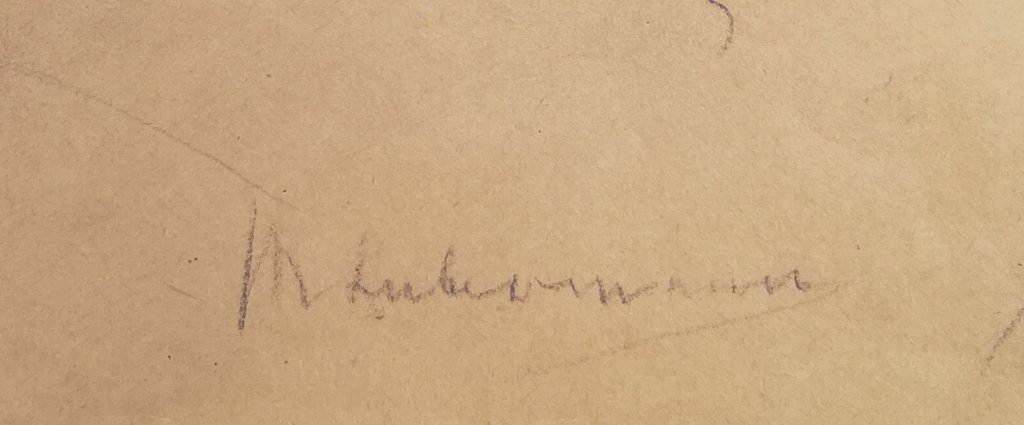 M Liebermann